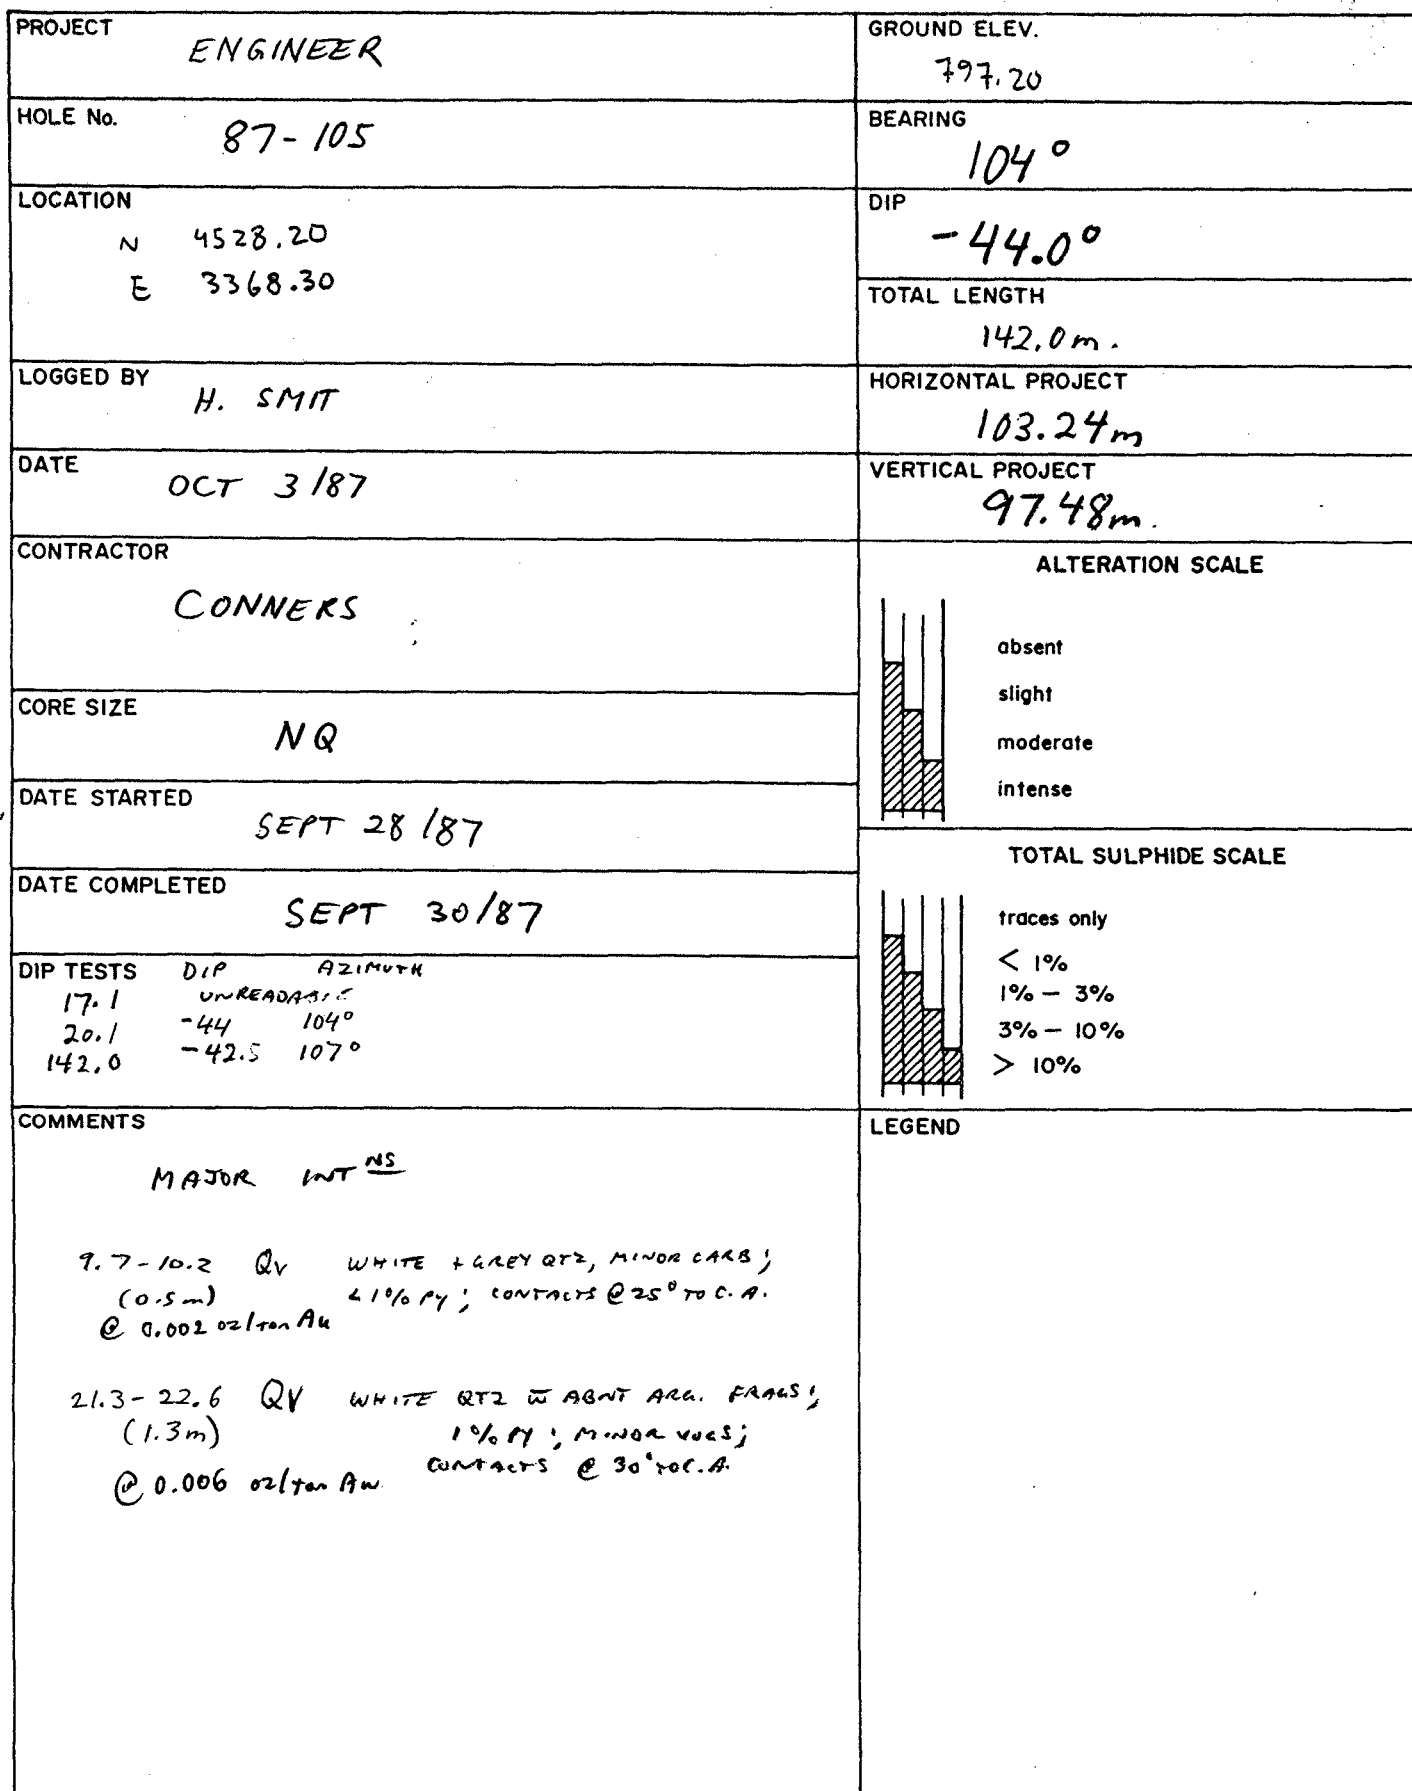 PROJECT
ENGINEER
HOLE No.
87-105
LOCATION
N 4528.20
E 3368.30
LOGGED BY
H. SMIT
DATE
OCT 3/87
CONTRACTOR
CONNERS
CORE SIZE
NQ
DATE STARTED
SEPT 28/87
DATE COMPLETED
SEPT 30/87
DIP TESTS DIP AZIMUTH
17.1 UNREADABLE
20.1 -44 104°
142.0 -42.5 107°
COMMENTS
MAJOR INTNS
9.7-10.2 QV WHITE + GREY QTZ, MINOR CARB;
(0.5m) <1% PY; CONTACTS @ 25° TO C.A.
@ 0.002 oz/ton Au
21.3-22.6 QV WHITE QTZ w̄ ABNT ARG. FRAGS;
(1.3m) 1% PY; MINOR VUGS;
CONTACTS @ 30° TO C.A.
@ 0.006 oz/ton Au
GROUND ELEV.
797.20
BEARING
104°
DIP
-44.0°
TOTAL LENGTH
142.0m.
HORIZONTAL PROJECT
103.24m
VERTICAL PROJECT
97.48m.
ALTERATION SCALE
absent
slight
moderate
intense
TOTAL SULPHIDE SCALE
traces only
< 1%
1% – 3%
3% – 10%
> 10%
LEGEND